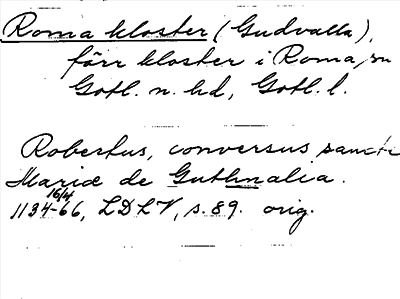 Roma kloster (Gudvalla),
förr kloster i Roma, sn
Gotl. n. hd, Gotl. l.
Robertus, conversus sancte
Mariæ de Guthnalia.
1134-66, 16/4 LDLV, s. 89. orig.